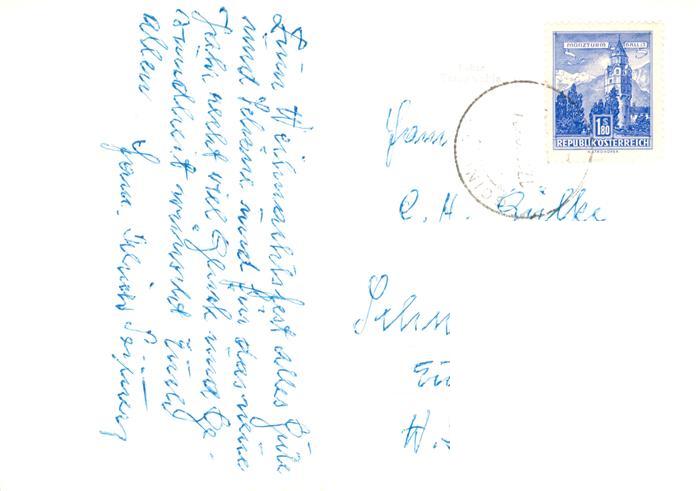 Zum Weihnachtsfest alles Gute
und Schöne und für das neue
Jahr recht viel Glück und Ge-
sundheit wünscht Euch
allen
Fam.
MÜNZTURM HALL i. T.
S 1.80
REPUBLIK ÖSTERREICH
Fam
C. H. Lüdke
Sehn
H.